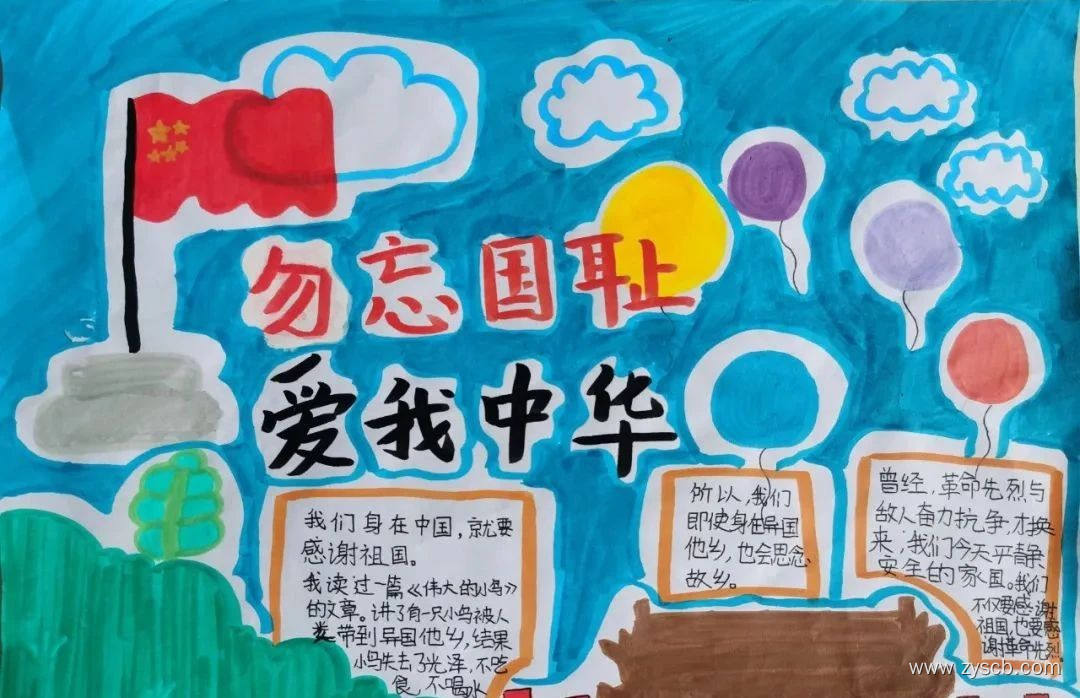 勿忘国耻
爱我中华
我们身在中国,就要
感谢祖国。
我读过一篇《伟大的小鸟》
的文章。讲了有一只小鸟被人
类带到异国他乡,结果
小鸟失去了光泽,不吃
食,不喝水
所以,我们
即使身在异国
他乡,也会思念
故乡。
曾经,革命先烈与
敌人奋力抗争,才换
来,我们今天平静
安全的家国。我们
不仅爱感谢
祖国,也要感
谢革命先烈
www.zyscb.com